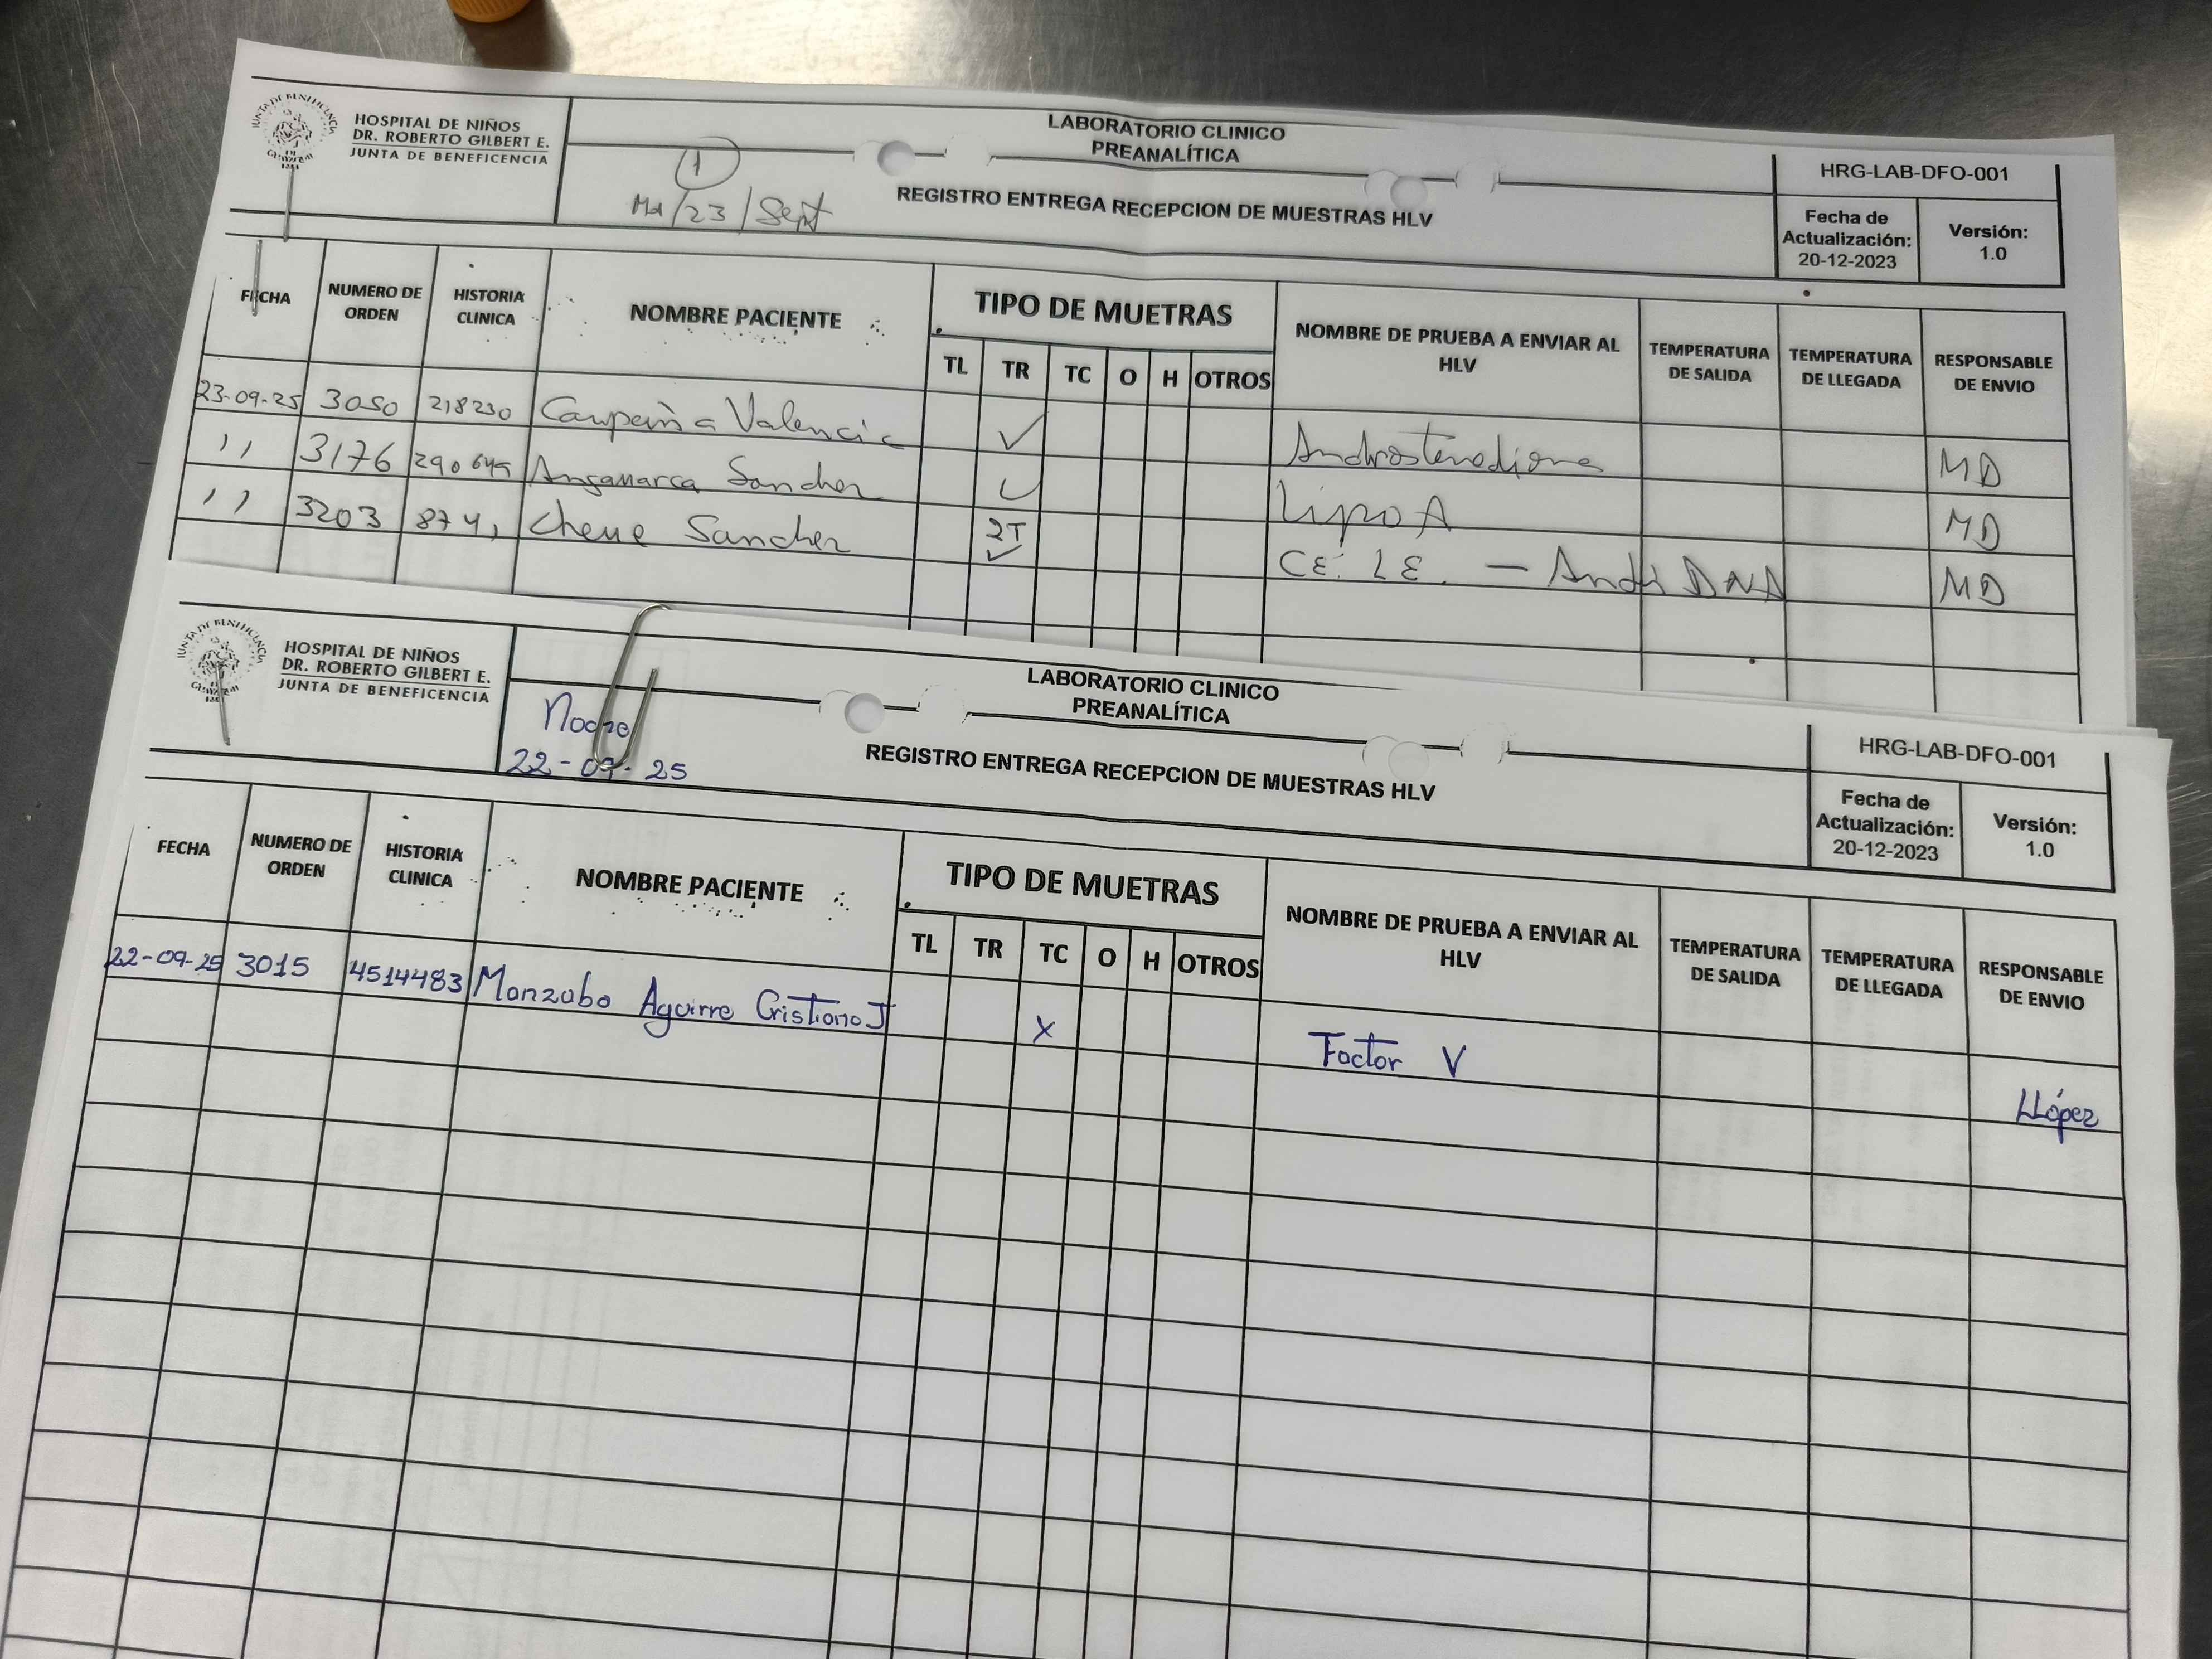 JUNTA DE BENEFICENCIA
HOSPITAL DE NIÑOS
DR. ROBERTO GILBERT E.
JUNTA DE BENEFICENCIA
1
23/Sept
LABORATORIO CLINICO
PREANALÍTICA
REGISTRO ENTREGA RECEPCION DE MUESTRAS HLV
HRG-LAB-DFO-001
Fecha de Actualización: 20-12-2023
Versión: 1.0
FECHA NUMERO DE ORDEN HISTORIA CLINICA NOMBRE PACIENTE TIPO DE MUETRAS NOMBRE DE PRUEBA A ENVIAR AL HLV TEMPERATURA DE SALIDA TEMPERATURA DE LLEGADA RESPONSABLE DE ENVIO
TL TR TC O H OTROS
23-09-25 3050 218230 Campaña Valencia ✓ Androstenediona MD
'' 3176 Angamarca Sanchez ✓ Lipo A MD
'' 3203 Sanchez 2T ✓ MD
JUNTA DE BENEFICENCIA
HOSPITAL DE NIÑOS
DR. ROBERTO GILBERT E.
JUNTA DE BENEFICENCIA
22-09-25
LABORATORIO CLINICO
PREANALÍTICA
REGISTRO ENTREGA RECEPCION DE MUESTRAS HLV
HRG-LAB-DFO-001
Fecha de Actualización: 20-12-2023
Versión: 1.0
FECHA NUMERO DE ORDEN HISTORIA CLINICA NOMBRE PACIENTE TIPO DE MUETRAS NOMBRE DE PRUEBA A ENVIAR AL HLV TEMPERATURA DE SALIDA TEMPERATURA DE LLEGADA RESPONSABLE DE ENVIO
TL TR TC O H OTROS
22-09-25 3015 4514483 Manzabo Aguirre Cristiano J X Factor V LLópez